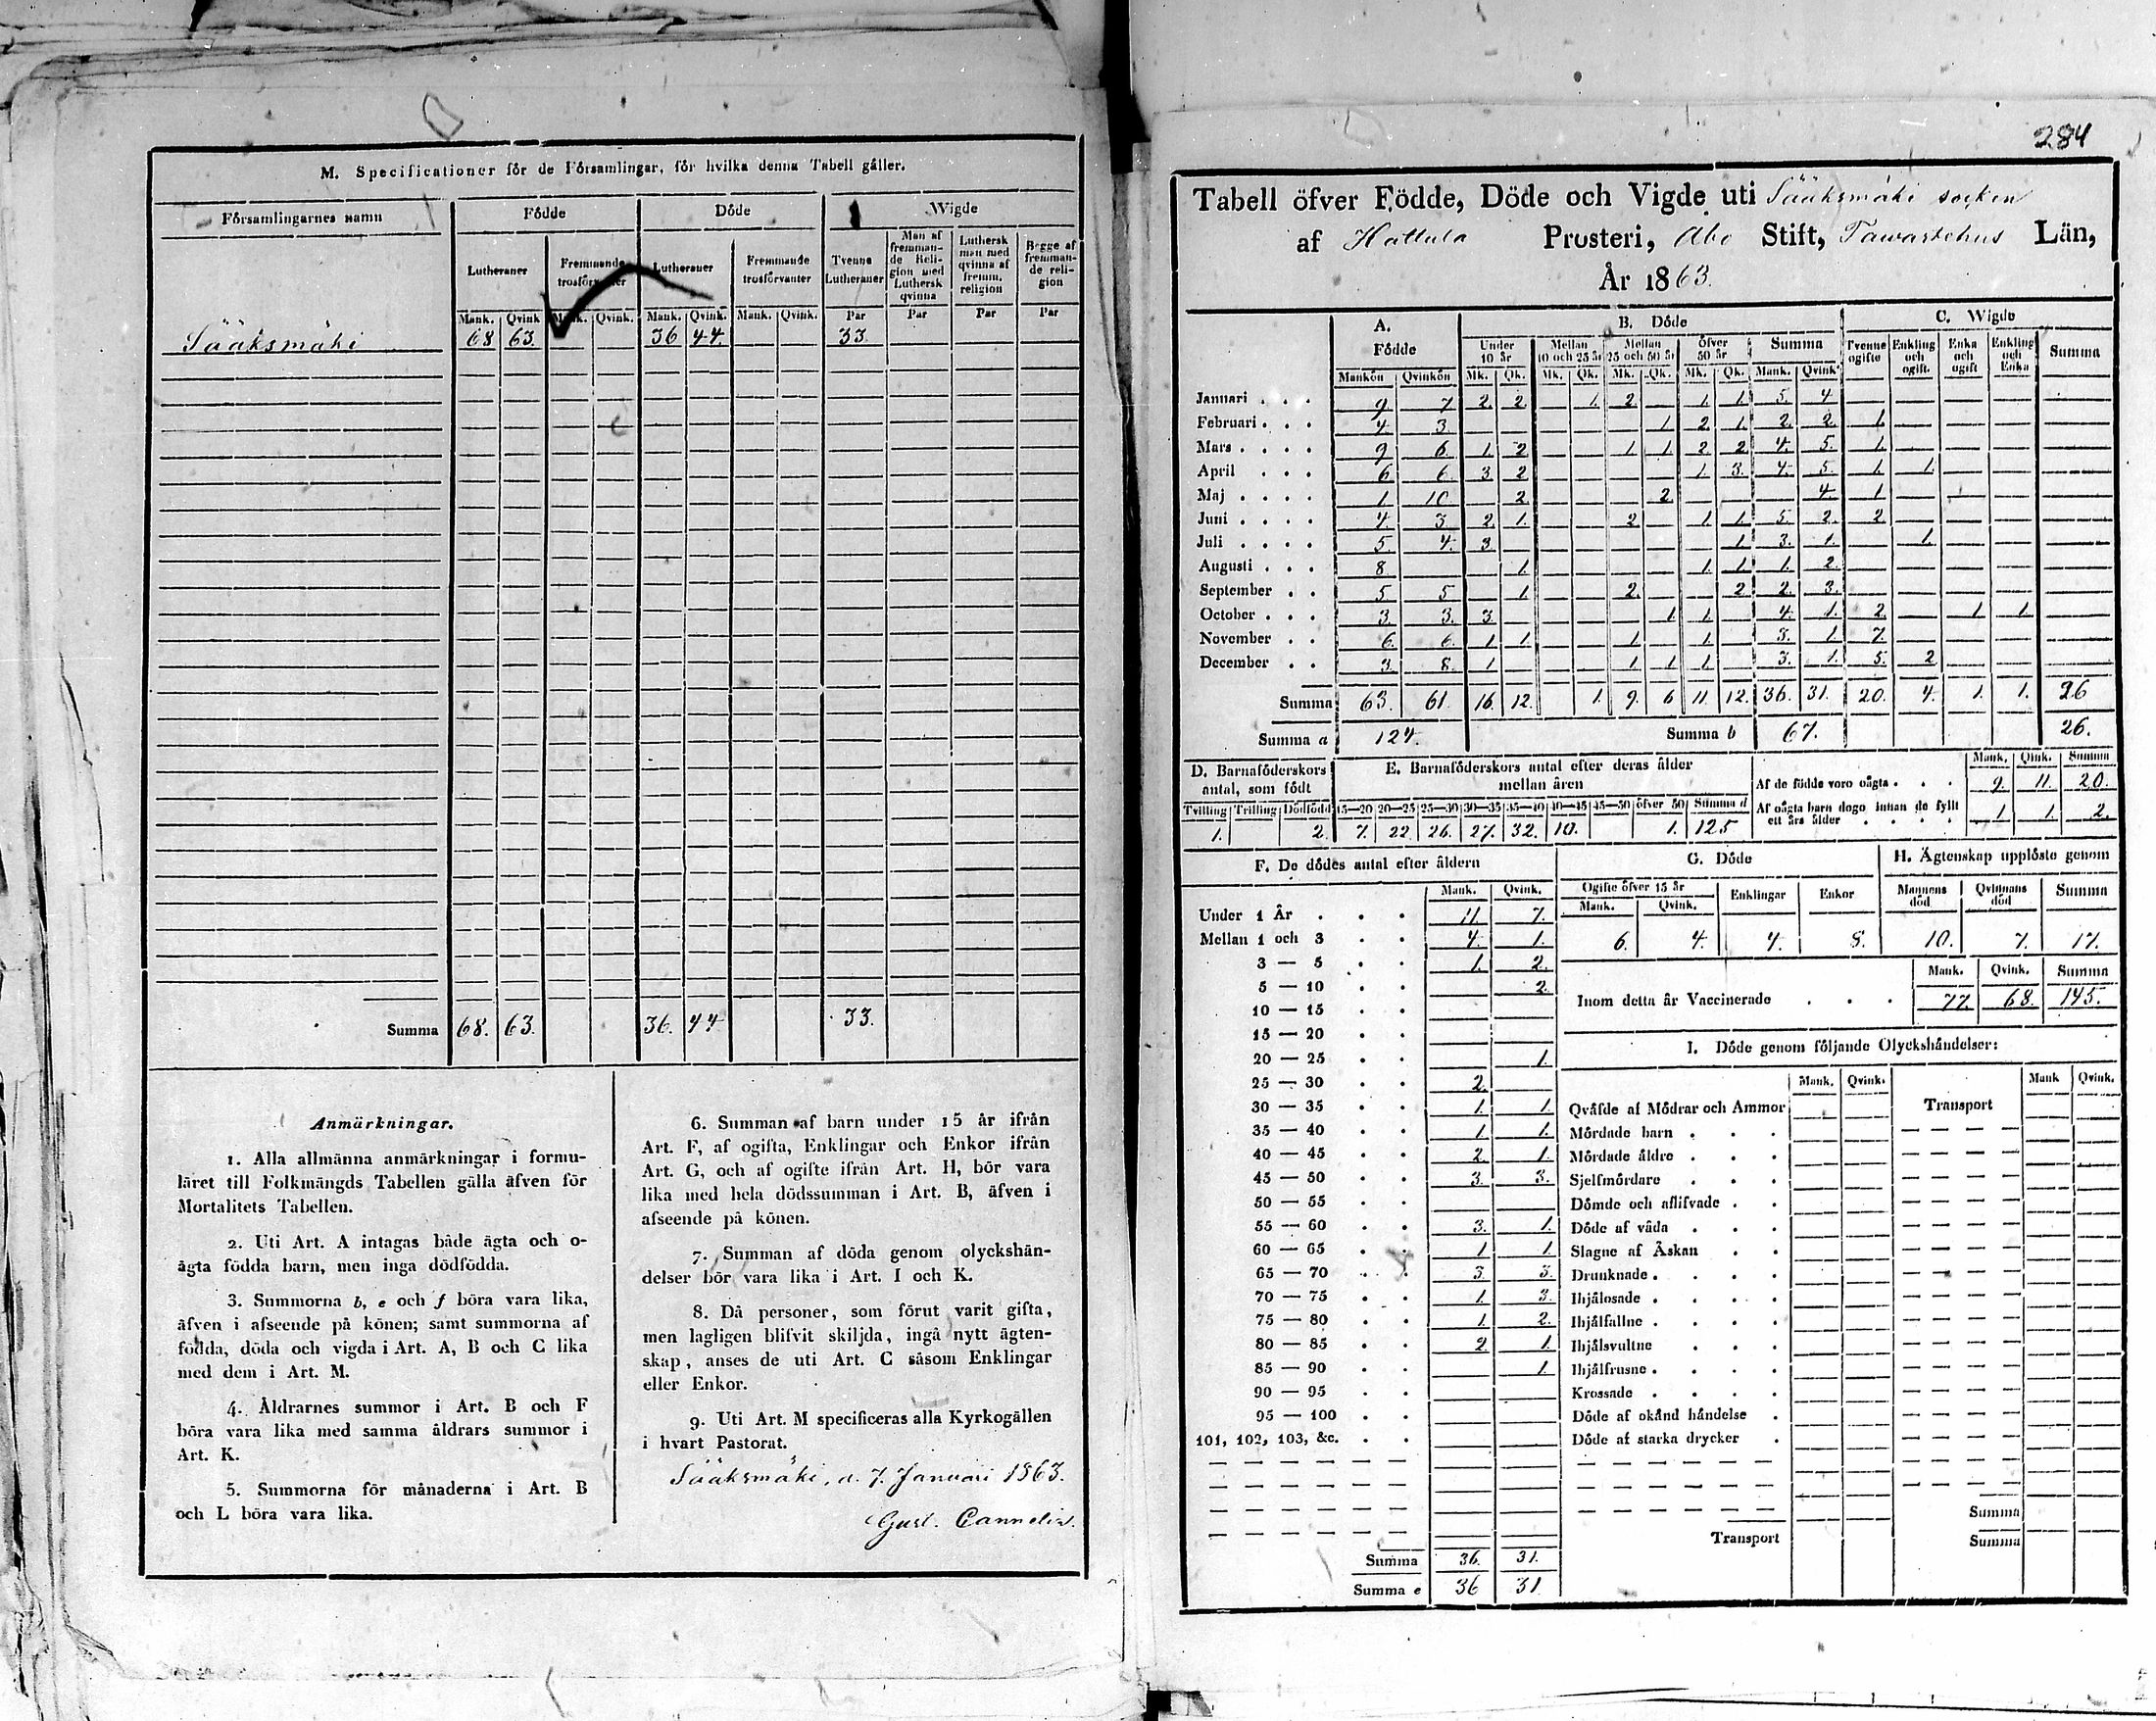 M. Specificationer för de Församlingar, för hvilka denna Tabell gäller.
Församlingarnes namn Födde Döde Wigde
Lutheraner Fremmande trosförvanter Lutheraner Fremmande trosförvanter Tvenne Lutheraner Man af fremmande Religion med Luthersk qvinna Luthersk man med qvinna af fremm. religion Begge af fremmande religion
Mank. Qvink Mank. Qvink. Mank. Qvink. Mank. Qvink. Par Par Par Par
Sääksmäki 68 63. 36 44. 33.
Summa 68. 63. 36. 44 33.
Anmärkningar.
1. Alla allmänna anmärkningar i formu-
läret till Folkmängds Tabellen gälla äfven för
Mortalitets Tabellen.
2. Uti Art. A intagas både ägta och o-
ägta födda barn, men inga dödfödda.
3. Summorna b, e och f böra vara lika,
äfven i afseende på könen; samt summorna af
födda, döda och vigda i Art. A, B och C lika
med dem i Art. M.
4. Åldrarnes summor i Art. B och F
böra vara lika med samma åldrars summor i
Art. K.
5. Summorna för månaderna i Art. B
och L böra vara lika.
6. Summan af barn under 15 år ifrån
Art. F, af ogifta, Enklingar och Enkor ifrån
Art. G, och af ogifte ifrån Art. H, bör vara
lika med hela dödssumman i Art. B, äfven i
afseende på könen.
7. Summan af döda genom olyckshän-
delser bör vara lika i Art. I och K.
8. Då personer, som förut varit gifta,
men lagligen blifvit skiljda, ingå nytt ägten-
skap, anses de uti Art. C såsom Enklingar
eller Enkor.
9. Uti Art. M specificeras alla Kyrkogällen
i hvart Pastorat.
Sääksmäki, d. 7. Januari 1863.
Gust. Cannelin.
284
Tabell öfver Födde, Döde och Vigde uti Sääksmäki socken
af Hattula Prosteri, Åbo Stift, Tawastehus Län,
År 1863.
A. Födde B. Döde C. Wigde
Under 10 år Mellan 10 och 25 år Mellan 25 och 50 år Öfver 50 år Summa Tvenne ogifte Enkling och ogift. Enka och ogift Enkling och Enka Summa
Mankön Qvinkön Mk. Qk. Mk. Qk. Mk. Qk. Mk. Qk. Mank. Qvink
Januari . . . 9. 7. 2. 2. 1. 2. 1. 1. 5. 4
Februari . . . 4 3. 1. 2. 1. 2. 2. 1.
Mars . . . . 9 6. 1. 2 1. 1. 2 2. 4. 5. 1.
April . . . 6 6. 3. 2 1. 3. 4. 5. 1. 1.
Maj . . . . 1. 10. 2. 2. 4 1.
Juni . . . . 4. 3. 2. 1. 2. 1. 1. 5. 2. 2.
Juli . . . . 5. 4. 3. 1. 3. 1. 1.
Augusti . . . 8. 1. 1. 1. 1. 2.
September . . 5. 5. 1. 2. 2. 2. 3.
October . . . 3. 3. 3. 1. 1. 4. 1. 2. 1. 1.
November . . 6. 6. 1. 1. 1. 1. 3. 1. 7.
December . . 3. 8. 1. 1. 1. 1. 3. 1. 5. 2
Summa 63. 61. 16. 12. 1. 9. 6 11. 12. 36. 31. 20. 4. 1. 1. 26
Summa a 124. Summa b 67. 26.
D. Barnaföderskors antal, som födt
E. Barnaföderskors antal efter deras ålder mellan åren
Tvilling Trilling Dödfödd 15—20 20—25 25—30 30—35 35—40 40—45 45—50 öfver 50 Summa d
1. 2. 7. 22. 26. 27. 32. 10. 1. 125
Mank. Qink. Summa
Af de födde voro oägta . . . 9. 11. 20.
Af oägta barn dogo innan de fyllt
ett års ålder . . . . 1. 1. 2.
F. De dödes antal efter åldern
Mank. Qvink.
Under 1 År . . . 11. 7.
Mellan 1 och 3 . . 4. 1.
3 — 5 . . 1. 2.
5 — 10 . . 2.
10 — 15 . .
15 — 20 . .
20 — 25 . . 1.
25 — 30 . . 2.
30 — 35 . . 1. 1.
35 — 40 . . 1. 1.
40 — 45 . . 2. 1.
45 — 50 . . 3. 3.
50 — 55 . .
55 — 60 . . 3. 1.
60 — 65 . . 1. 1.
65 — 70 . . 3. 3.
70 — 75 . . 1. 3.
75 — 80 . . 1. 2.
80 — 85 . . 2 1.
85 — 90 . . 1.
90 — 95 . .
95 — 100 . .
101, 102, 103, &c. . .
Summa 36. 31.
Summa e 36 31
G. Döde
Ogifte öfver 15 år Enklingar Enkor
Mank. Qvink.
6. 4. 4. 8.
H. Ägtenskap upplöste genom
Mannens död Qvinnans död Summa
10. 7. 17.
Mank. Qvink. Summa
Inom detta år Vaccinerade . . . 77. 68. 145.
I. Döde genom följande Olyckshändelser:
Mank. Qvink. Mank Qvink.
Qväfde af Mödrar och Ammor Transport
Mördade barn . . .
Mördade äldre . . .
Sjelfmördare . . .
Dömde och aflifvade . .
Döde af våda . . .
Slagne af Åskan . .
Drunknade . . . .
Ihjälosade . . . .
Ihjälfallne . . . .
Ihjälsvultne . . .
Ihjälfrusne . . . .
Krossade . . . .
Döde af okänd händelse .
Döde af starka drycker .
Summa
Transport Summa